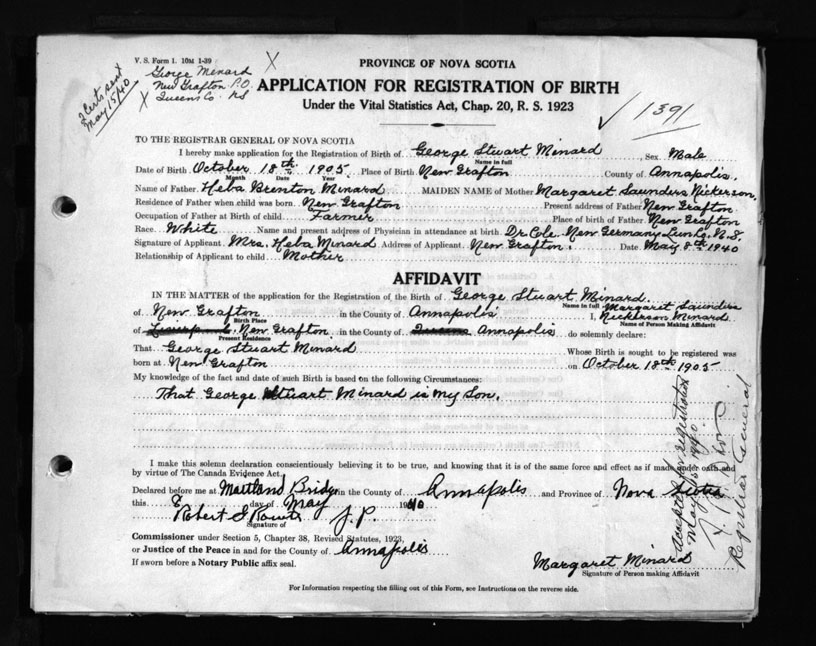 V. S. Form 1. 10M 1-39
X
George Menard
New Grafton P.O.
X Queens Co. NS
2 Certs sent
May 15/40
PROVINCE OF NOVA SCOTIA
APPLICATION FOR REGISTRATION OF BIRTH
Under the Vital Statistics Act, Chap. 20, R. S. 1923
✓ 1391
TO THE REGISTRAR GENERAL OF NOVA SCOTIA
I hereby make application for the Registration of Birth of George Stuart Minard, Sex Male
Name in full
Date of Birth October 18th 1905 Place of Birth New Grafton County of Annapolis.
Month Date Year
Name of Father Heba Brenton Minard MAIDEN NAME of Mother Margaret Saunders Nickerson,
Residence of Father when child was born New Grafton Present address of Father New Grafton
Occupation of Father at Birth of child Farmer Place of birth of Father New Grafton
Race White Name and present address of Physician in attendance at birth Dr. Cole. New Germany Lunbg. N.S.
Signature of Applicant Mrs. Heba Minard Address of Applicant New Grafton. Date May 8th 1940
Relationship of Applicant to child Mother
AFFIDAVIT
IN THE MATTER of the application for the Registration of the Birth of George Stuart Minard.
Name in full
of New Grafton in the County of Annapolis I, Margaret Saunders Nickerson Minard
Birth Place
Name of Person Making Affidavit
of New Grafton in the County of Queens Annapolis do solemnly declare:
Present Residence
That George Stuart Minard Whose Birth is sought to be registered was
born at New Grafton on October 18th 1905
My knowledge of the fact and date of such Birth is based on the following Circumstances:
That George Stuart Minard is my Son.
I make this solemn declaration conscientiously believing it to be true, and knowing that it is of the same force and effect as if made under oath and
by virtue of The Canada Evidence Act.
Declared before me at Maitland Bridge in the County of Annapolis and Province of Nova Scotia
this 8 day of May 1940
Robert J. P.
Signature of
Commissioner under Section 5, Chapter 38, Revised Statutes, 1923,
or Justice of the Peace in and for the County of Annapolis
If sworn before a Notary Public affix seal.
Margaret Minard
Signature of Person making Affidavit
Accepted for registration
May 15 1940
Registrar General
For Information respecting the filling out of this Form, see Instructions on the reverse side.